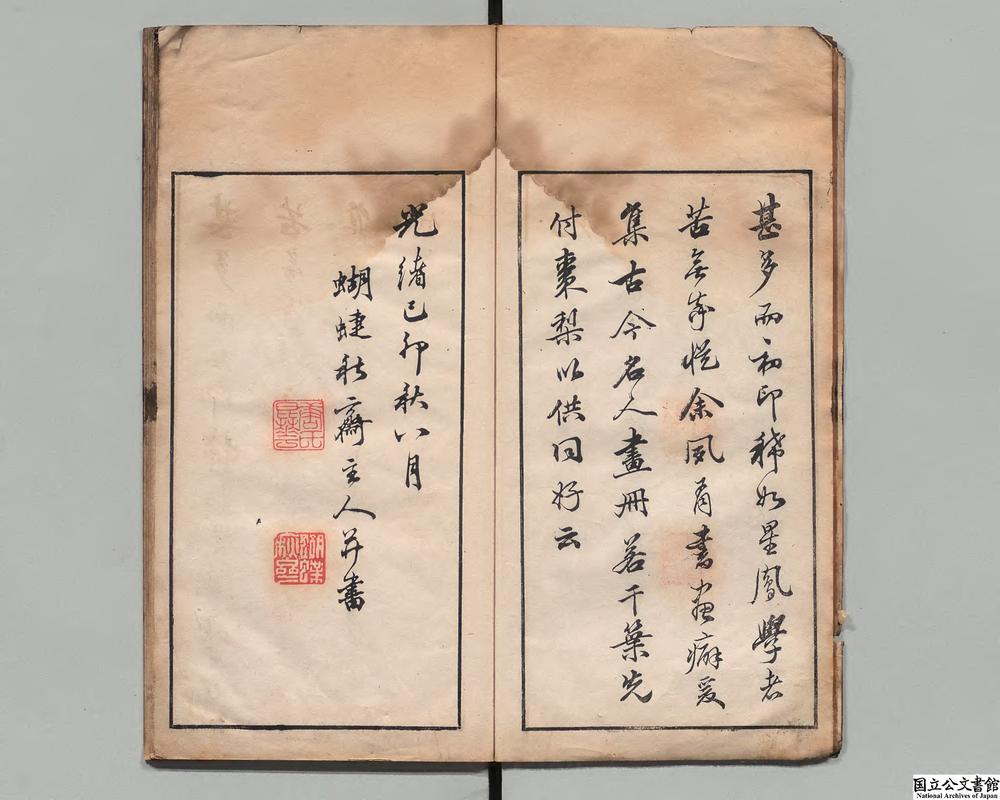 甚多而初印稀如星鳳學者
苦無所悦余夙有書畫癖爰
集古今名人畫冊若干葉先
付棗梨以供同好云
光緒己卯秋八月
蝴蝶秋齋主人并書
蝴蝶秋齋
国立公文書館
National Archives of Japan